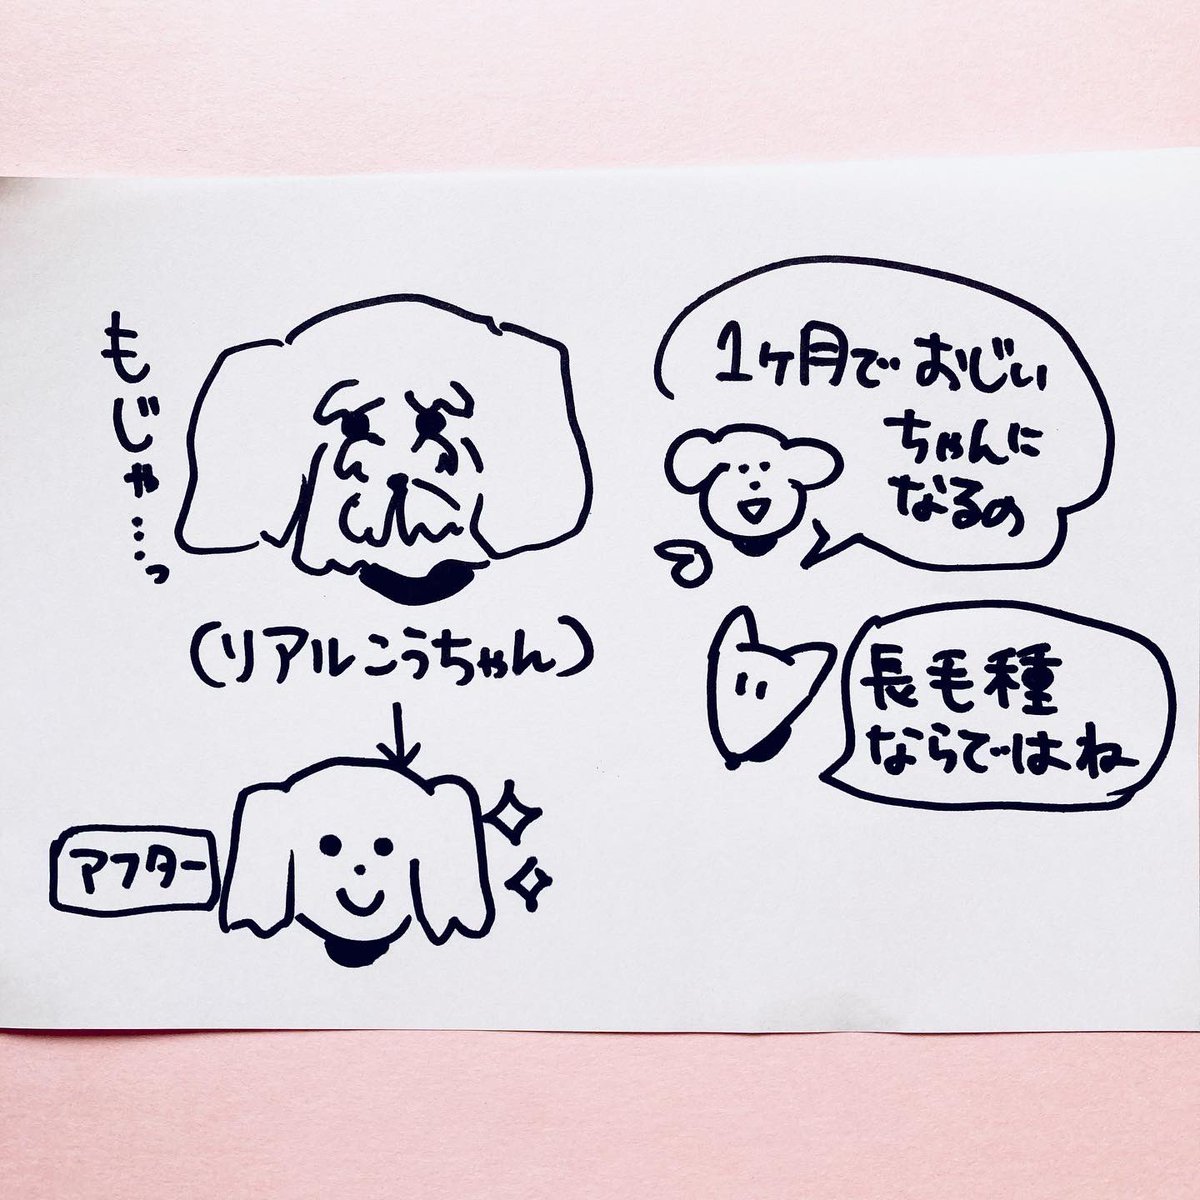 もじゃ…っ
(リアルこうちゃん)
アフター
1ヶ月でおじい
ちゃんに
なるの
長毛種
ならではね